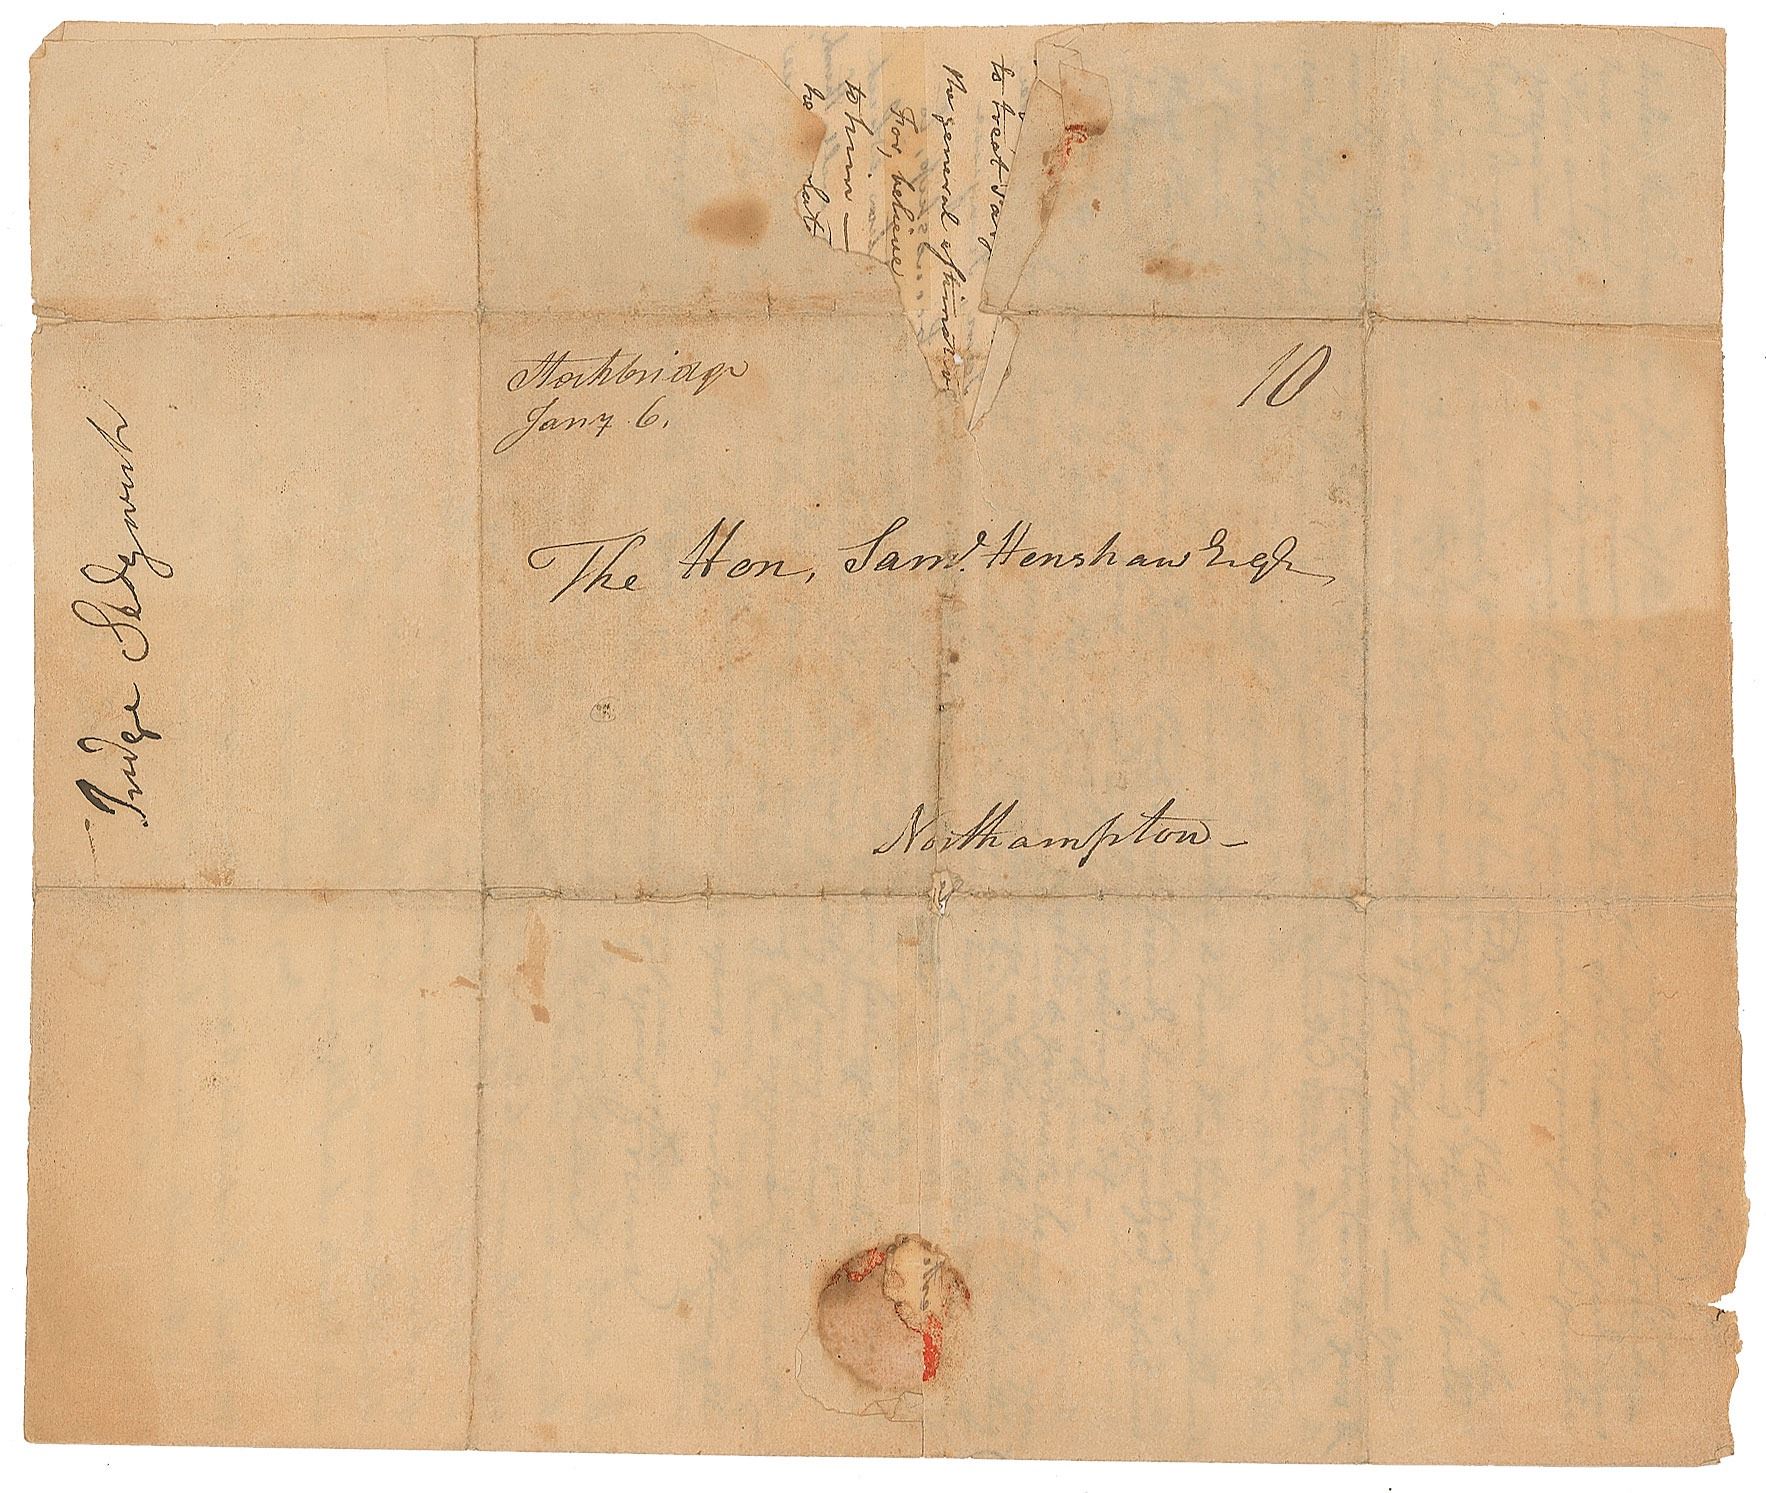 Stockbridge
Jany 6.
10
The Hon, Saml. Henshaw Esqr
Northampton-
Judge Sedgwick
to treat
the general estimation
For, believe
to him —
he